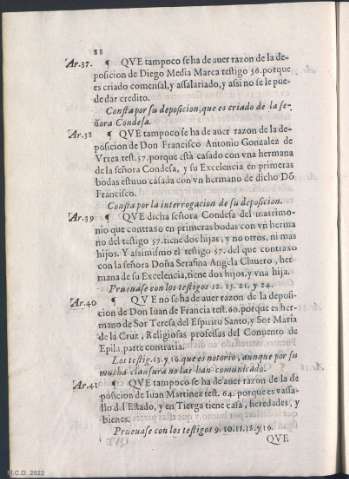 88
Ar.37. ¶ QVE tampoco se ha de auer razon de la de-
posicion de Diego Media Marca testigo 56. porque
es criado comensal, y assalariado, y assi no se le pue-
de dar credito.
Consta por su deposicion, que es criado de la se-
ñora Condesa.
Ar.38 ¶ QVE tampoco se ha de auer razon de la de-
posicion de Don Francisco Antonio Gonzalez de
Vrrea test. 57. porque està casado con vna hermana
de la señora Condesa, y su Excelencia en primeras
bodas estuuo casada con vn hermano de dicho Dõ
Francisco.
Consta por la interrogacion de su deposicion.
Ar.39 ¶ QVE dicha señora Condesa del matrimo-
nio que contraxo en primeras bodas con vn herma
no del testigo 57. tiene dos hijas, y no otros, ni mas
hijos. Y assimismo el testigo 57. del que contraxo
con la señora Doña Serafina Angela Clauero, her-
mana de su Excelencia, tiene dos hijos, y vna hija.
Prueuase con los testigos 12. 13. 21. y 24.
Ar.40 ¶ QVE no se ha de auer razon de la deposi-
cion de Don Iuan de Francia test. 60. porque es her-
mano de Sor Teresa del Espiritu Santo, y Sor Maria
de la Cruz, Religiosas professas del Conuento de
Epila, parte contraria.
Los testig. 13. y 16. que es notorio, aunque por su
mucha clausura no las han comunicado.
Ar.41 ¶ QVE tampoco se ha de auer razon de la de
posicion de Iuan Martinez test. 64. porque es vassa-
llo del Estado, y en Tierga tiene casa, heredades, y
bienes.
Prueuase con los testigos 9. 10. 11. 18. y 19.
QVE
M.C.D. 2022